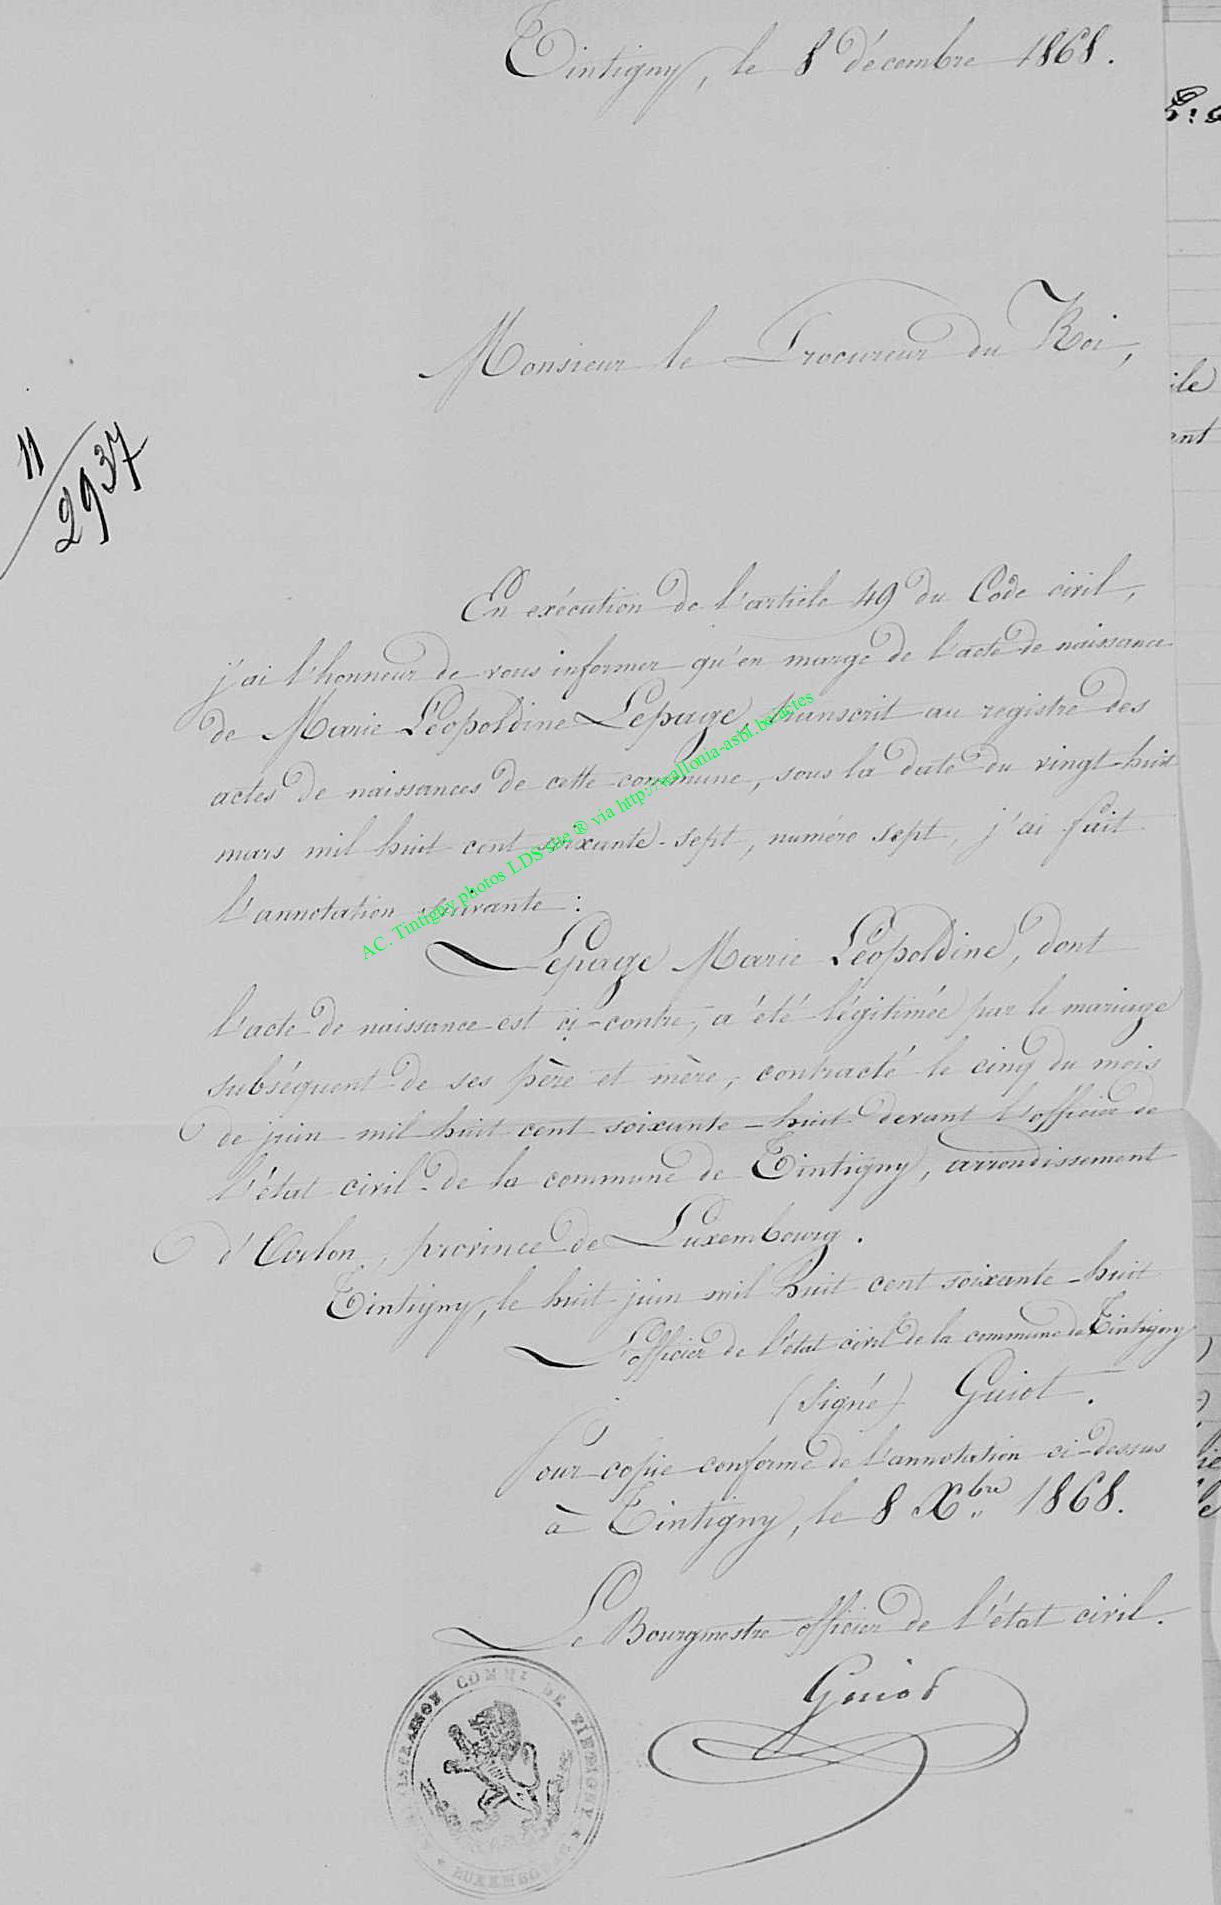 Tintigny, le 8 décembre 1868.
Monsieur le Procureur du Roi,
11/2937
En exécution de l'article 49 du Code civil,
j'ai l'honneur de vous informer qu'en marge de l'acte de naissance
de Marie Léopoldine Lepage, transcrit au registre des
actes de naissances de cette commune, sous la date du vingt-huit
mars mil huit cent soixante-sept, numéro sept, j'ai fait
l'annotation suivante :
Lepage Marie Léopoldine, dont
l'acte de naissance est ci-contre, a été légitimée par le mariage
subséquent de ses père et mère, contracté le cinq du mois
de juin mil huit cent soixante-huit devant l'officier de
l'état civil de la commune de Tintigny, arrondissement
d'Arlon, province de Luxembourg.
Tintigny, le huit juin mil huit cent soixante-huit
L'officier de l'état civil de la commune de Tintigny
(signé) Guiot.
Pour copie conforme de l'annotation ci-dessus
à Tintigny, le 8 Xbre 1868.
Le Bourgmestre officier de l'état civil.
Guiot
COMM DE TINTIGNY
AC. Tintigny photos LDS site ® via http://wallonia-asbl.be/actes
ile
ent